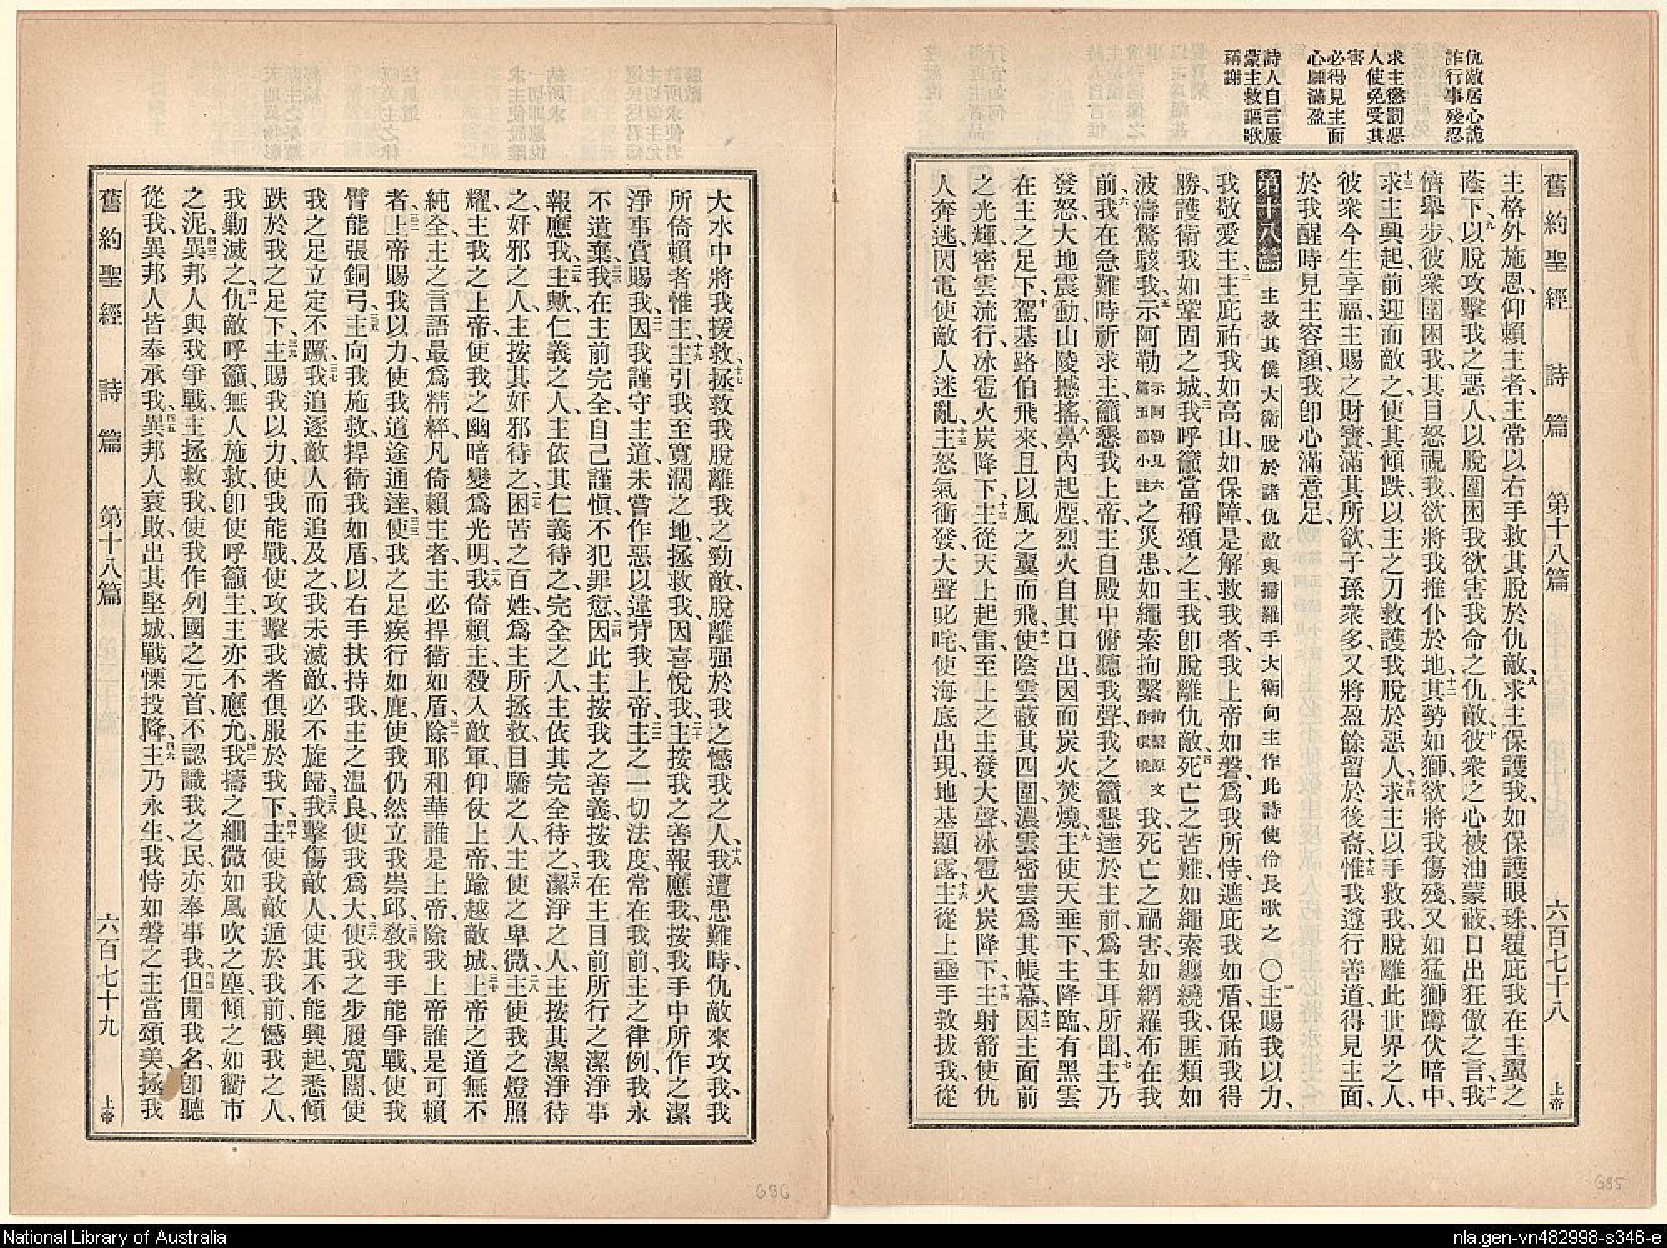 仇敵居心詭
詐行事殘忍
求主懲罰惡
人使免受其
害
必得見主面
心願滿盈
詩人自言屢
蒙主救謳歌
稱謝
舊約聖經 詩篇 第十八篇 六百七十八 上帝
主格外施恩、仰賴主者、主常以右手救其脫於仇敵、八求主保護我、如保護眼珠、覆庇我在主翼之
蔭下、九以脫攻擊我之惡人、以脫圍困我欲害我命之仇敵、十彼衆之心被油蒙蔽、口出狂傲之言、十一我
儕舉步、彼衆圍困我、其目怒視我、欲將我推仆於地、十二其勢如獅、欲將我傷殘、又如猛獅蹲伏暗中、
十三求主興起、前迎而敵之、使其傾跌、以主之刀救護我脫於惡人、十四求主以手救我、脫離此世界之人、
彼衆今生享福、主賜之財寶、滿其所欲、子孫衆多、又將盈餘留於後裔、十五惟我遵行善道、得見主面、
於我醒時見主容顏、我卽心滿意足、
第十八篇 主救其僕大衛脫於諸仇敵與掃羅手大衛向主作此詩使伶長歌之 〇一主賜我以力、
我敬愛主、二主庇祐我如高山、如保障、是解救我者、我上帝如磐、爲我所恃、遮庇我如盾、保祐我得
勝、護衛我如鞏固之城、三我呼籲當稱頌之主、我卽脫離仇敵、四死亡之苦難、如繩索纏繞我、匪類如
波濤驚駭我、五示阿勒 示阿勒見六篇五節小註 之災患如繩索拘繫 拘繫原文作環繞 我、死亡之禍害、如網羅布在我
前、六我在急難時祈求主、籲懇我上帝、主自殿中俯聽我聲、我之籲懇達於主前、爲主耳所聞、七主乃
發怒、大地震動、山陵撼搖、八鼻內起煙、烈火自其口出、因而炭火焚燒、九主使天垂下、主降臨、有黑雲
在主之足下、十駕基路伯飛來、且以風之翼而飛、十一使陰雲蔽其四圍、濃雲密雲爲其帳幕、十二因主面前
之光輝、密雲流行、冰雹火炭降下、十三主從天上起雷、至上之主發大聲、冰雹火炭降下、十四主射箭使仇
人奔逃、閃電使敵人迷亂、十五主怒氣衝發、大聲叱咤、使海底出現、地基顯露、十六主從上垂手救拔我、從
大水中將我援救、十七拯救我脫離我之勁敵、脫離强於我之憾我之人、十八我遭患難時、仇敵來攻我、我
所倚賴者惟主、十九主引我至寬濶之地、拯救我、因喜悅我、二十主按我之善報應我、按我手中所作之潔
淨事賞賜我、二一因我謹守主道、未嘗作惡以違背我上帝、二二主之一切法度、常在我前、主之律例、我永
不遺棄、二三我在主前完全、自己謹愼不犯罪愆、二四因此主按我之善義、按我在主目前所行之潔淨事
報應我、二五主歟、仁義之人、主依其仁義待之、完全之人、主依其完全待之、二六潔淨之人、主按其潔淨待
之、奸邪之人、主按其奸邪待之、二七困苦之百姓、爲主所拯救、目驕之人、主使之卑微、二八主使我之燈照
耀、主我之上帝、使我之幽暗變爲光明、二九我倚賴主、殺入敵軍、仰仗上帝、踰越敵城、三十上帝之道無不
純全、主之言語最爲精粹、凡倚賴主者、主必捍衛如盾、三一除耶和華誰是上帝、除我上帝誰是可賴
者、三二上帝賜我以力、使我道途通達、三三使我之足疾行如鹿、使我仍然立我崇邱、三四敎我手能爭戰、使我
臂能張銅弓、三五主向我施救、捍衛我如盾、以右手扶持我、主之温良、使我爲大、三六使我之步履寬闊、使
我之足立定不蹶、三七我追逐敵人而追及之、我未滅敵、必不旋歸、三八我擊傷敵人、使其不能興起、悉傾
跌於我之足下、三九主賜我以力、使我能戰、使攻擊我者俱服於我下、四十主使我敵遁於我前、憾我之人、
我勦滅之、四一仇敵呼籲、無人施救、卽使呼籲主、主亦不應允、四二我擣之細微如風吹之塵、傾之如衢市
之泥、四三異邦人與我爭戰、主拯救我、使我作列國之元首、不認識我之民、亦奉事我、四四但聞我名、卽聽
從我、異邦人皆奉承我、四五異邦人衰敗、出其堅城、戰慄投降、四六主乃永生、我恃如磐之主、當頌美、拯我
舊約聖經 詩篇 第十八篇 六百七十九 上帝
686
685
National Library of Australia
nla.gen-vn482998-s346-e